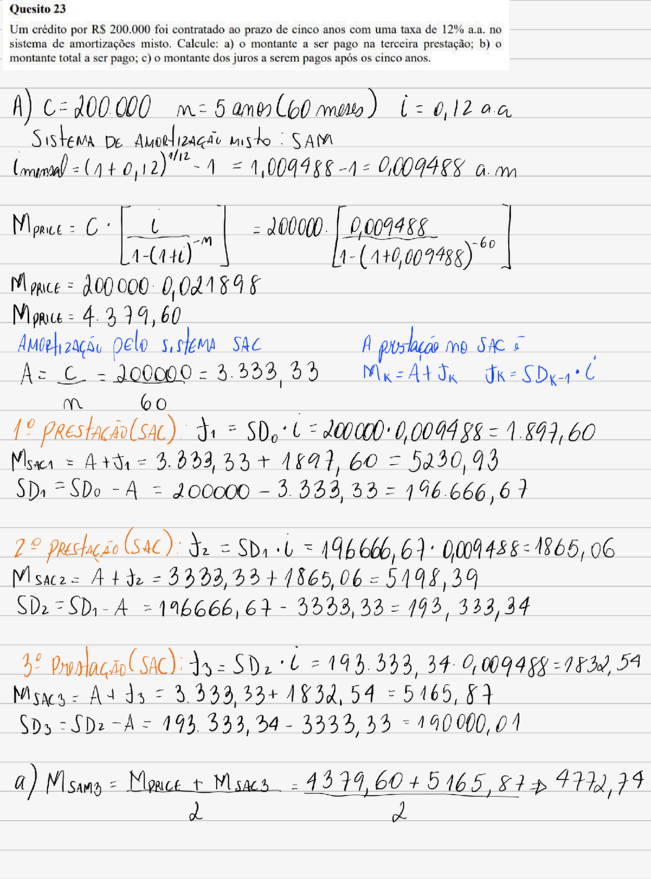 Quesito 23
Um crédito por R$ 200.000 foi contratado ao prazo de cinco anos com uma taxa de 12% a.a. no
sistema de amortizações misto. Calcule: a) o montante a ser pago na terceira prestação; b) o
montante total a ser pago; c) o montante dos juros a serem pagos após os cinco anos.
A) C = 200.000 n = 5 anos (60 meses) i = 0,12 a.a
SISTEMA DE AMORTIZAÇÃO MISTO : SAM
i mensal = (1 + 0,12)^1/12 - 1 = 1,009488 - 1 = 0,009488 a.m
M PRICE = C · [i / 1-(1+i)^-n] = 200000 · [0,009488 / 1-(1+0,009488)^-60]
M PRICE = 200000 · 0,021898
M PRICE = 4.379,60
AMORTIZAÇÃO PELO SISTEMA SAC A prestação no SAC é
A = C / n = 200000 / 60 = 3.333,33 MK = A + JK JK = SDK-1 · i
1º PRESTAÇÃO (SAC) : J1 = SD0 · i = 200000 · 0,009488 = 1.897,60
MSAC1 = A + J1 = 3.333,33 + 1897,60 = 5230,93
SD1 = SD0 - A = 200000 - 3.333,33 = 196.666,67
2º PRESTAÇÃO (SAC) : J2 = SD1 · i = 196666,67 · 0,009488 = 1865,06
MSAC2 = A + J2 = 3333,33 + 1865,06 = 5198,39
SD2 = SD1 - A = 196666,67 - 3333,33 = 193,333,34
3º Prestação (SAC) : J3 = SD2 · i = 193.333,34 · 0,009488 = 1832,54
MSAC3 = A + J3 = 3.333,33 + 1832,54 = 5165,87
SD3 = SD2 - A = 193.333,34 - 3333,33 = 190000,01
a) MSAM3 = MPRICE + MSAC3 / 2 = 4379,60 + 5165,87 / 2 ⇒ 4772,74